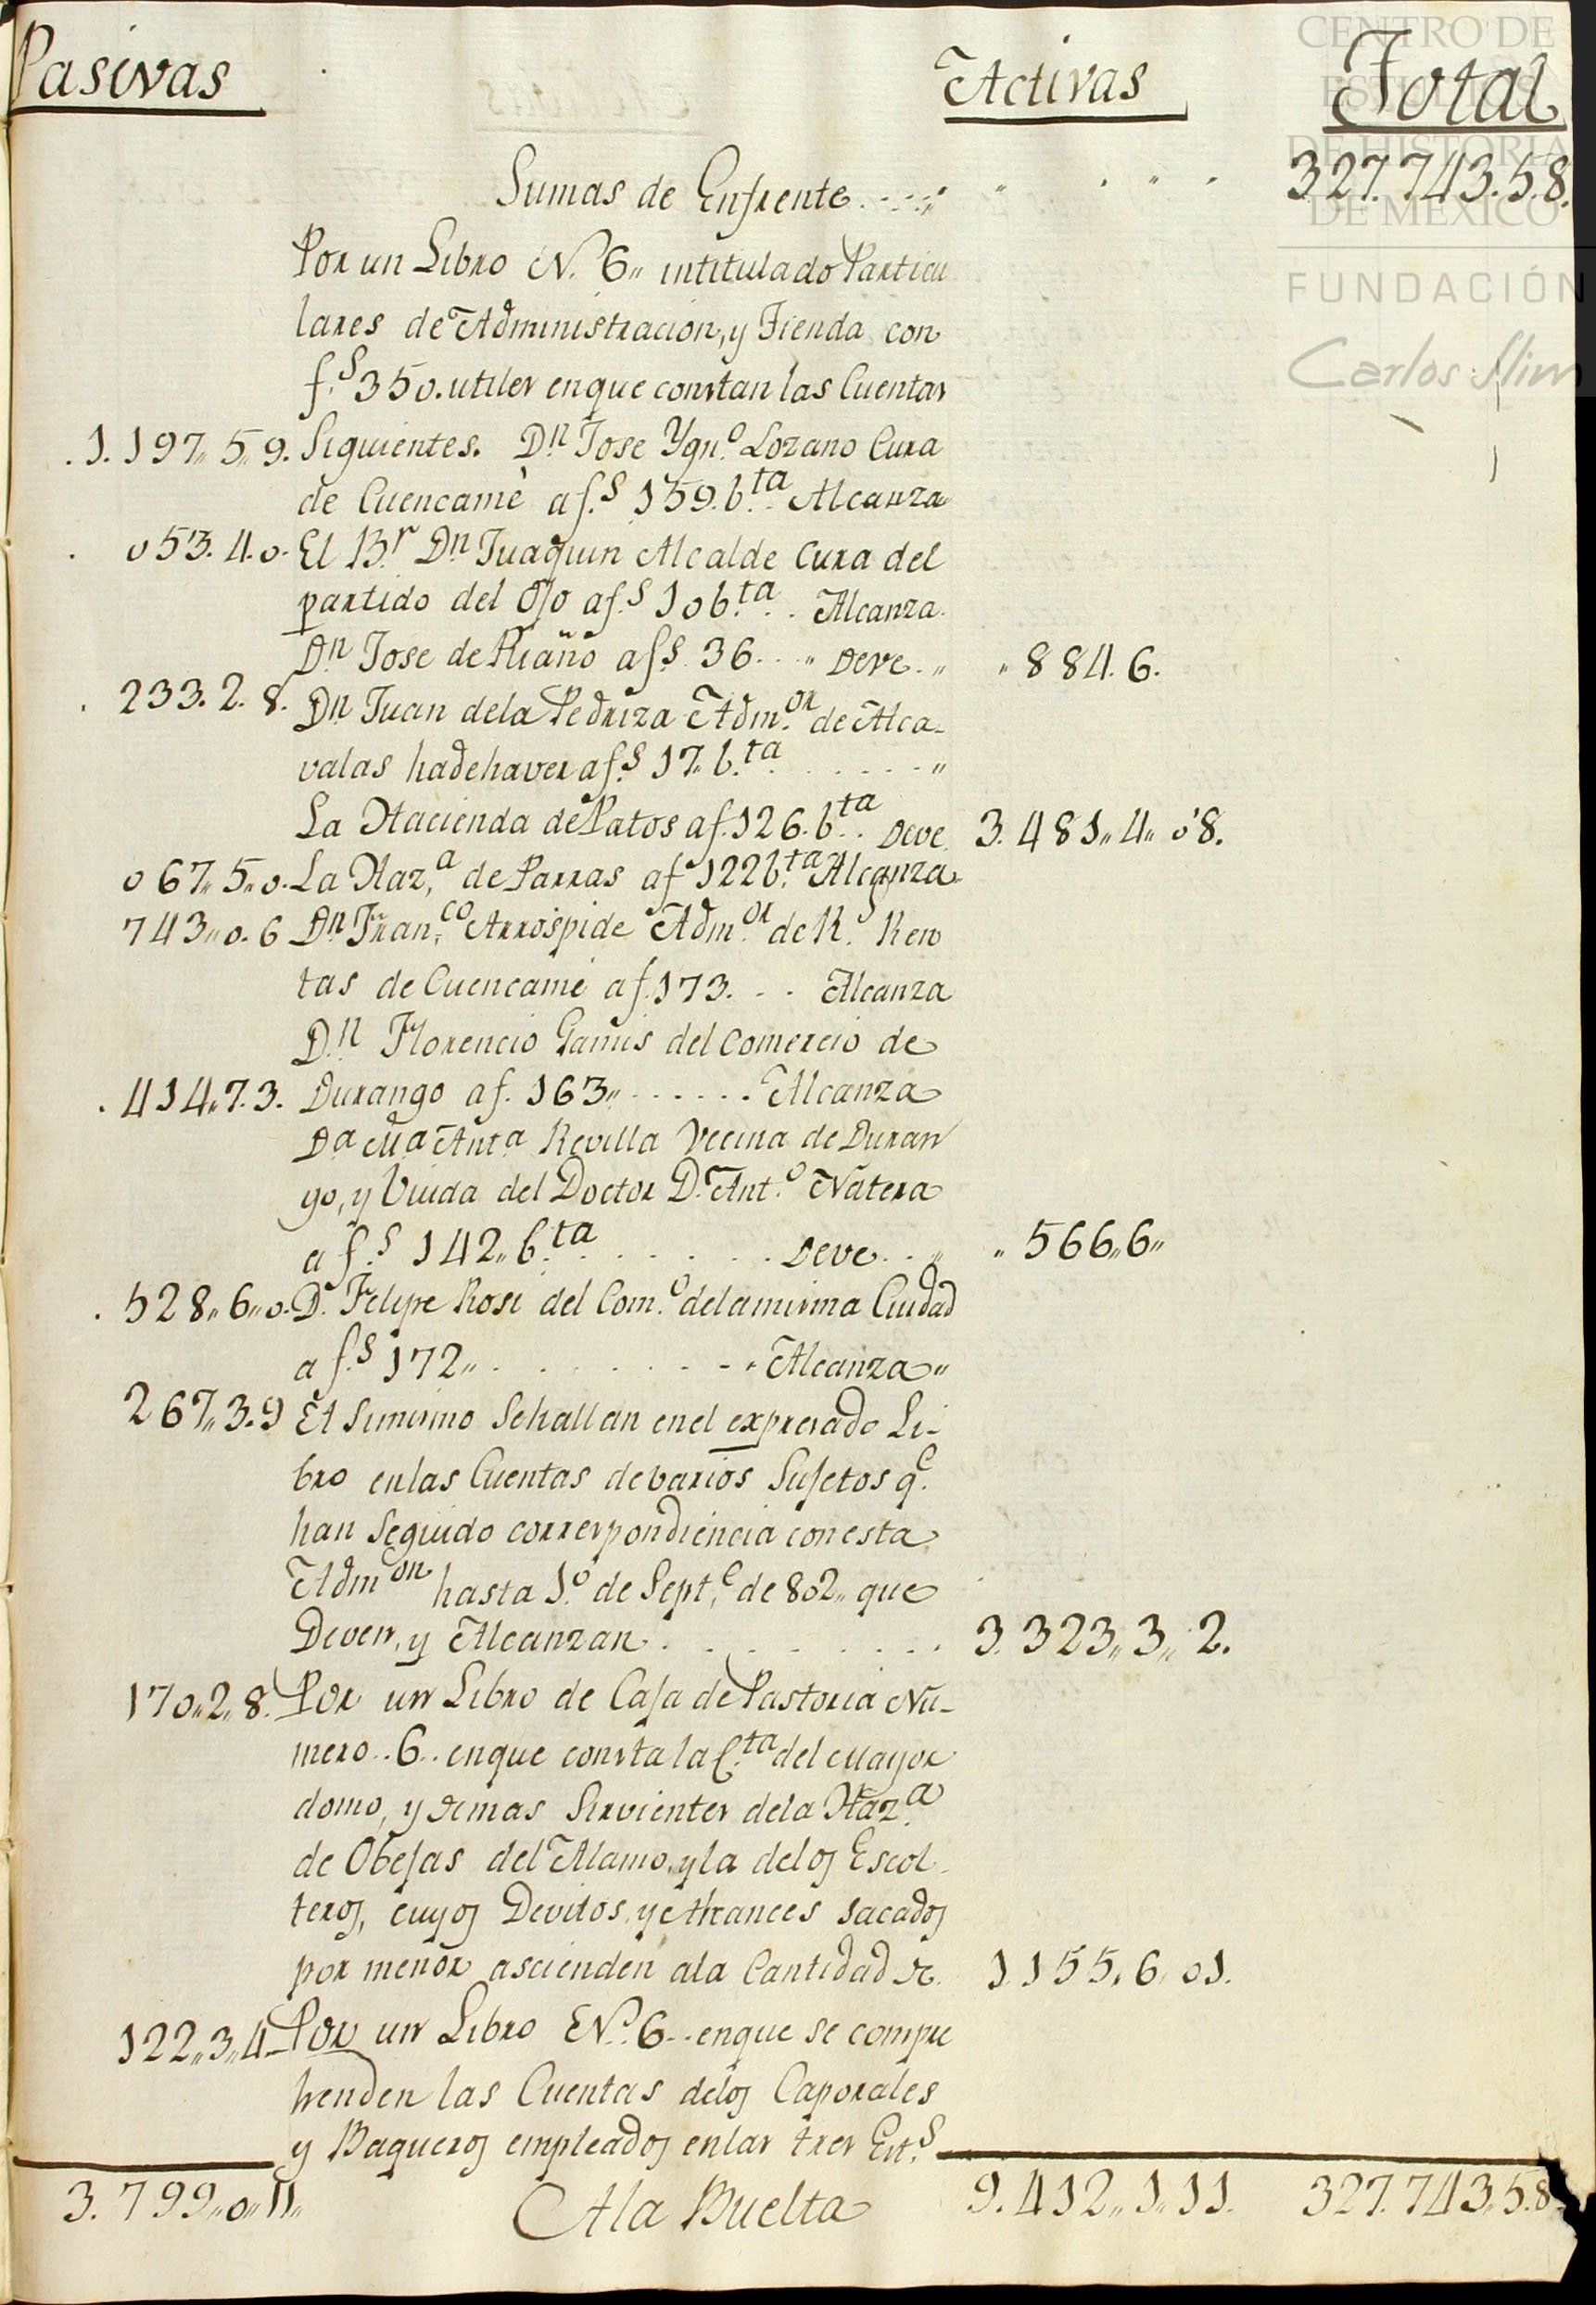 Pasivas Activas Total
Sumas de Enfrente 327.743.5.8.
Por un Libro N. 6,, intitulado Particu
lares de Administracion, y Tienda con
f.s 350. utiles en que constan las Cuentas
.1.197,,5,,9. Siguientes. Dn. Jose Ygn.o Lozano Cura
de Cuencamè a f.s 159. b.ta Alcanza
. 053.4.0. El Br. Dn. Juaquin Alcalde Cura del
partido del Ojo a f.s 10 b.ta . . Alcanza.
Dn. Jose de Riaño a f.s 36 . . ,, Deve . ,, ,, 884.6.
. 233.2.8. Dn. Juan de la Pedriza Adm.or de Alca-
valas ha de haver a f.s 17. b.ta . . . . . . ,,
La Hacienda de Patos a f. 126. b.ta . . Deve 3.481,,4,,08.
067,,5,,0. La Haz.a de Parras a f.s 122 b.ta Alcanza
743,,0.6 Dn. Fran.co Arrospide Adm.or de R.s Ren
tas de Cuencame a f. 173. . . Alcanza
D.n Florencio Gamis del Comercio de
. 414,,7.3. Durango a f. 163,, . . . . . . Alcanza
Da. Ma. Anta. Revilla Vecina de Duran
go, y Viuda del Doctor D. Ant.o Natera
a f.s 142,, b.ta . . . . . . Deve . . ,, ,, 566,,6,,
. 528,,6,,0. D. Felipe Rosi del Com.o de la misma Ciudad
a f.s 172,, . . . . . . . Alcanza,,
267,,3.9 At simismo Se hallan en el expresado Li-
bro en las Cuentas de varios Sujetos q.e
han Seguido correspondiencia con esta
Adm.on hasta 1.o de Sept.e de 802,, que
Deven, y Alcanzan . . . . . . . . 3.323,,3,,2.
170,,2,,8. Por un Libro de Caja de Pastoria Nu-
mero . . 6 . . en que consta la C.ta del Mayor
domo, y demas Sirvientes de la Haz.a
de Obejas del Alamo, y la de los Escol-
teros, cuyos Devitos, y Alcances sacados
por menor ascienden a la Cantidad de 1.155,,6,,01.
122,,3,,4- Por un Libro N.o 6 . . en que se compre
henden las Cuentas de los Caporales
y Baqueros empleados en las tres Est.s
3.799,,0,,11,, A la Buelta 9.412,,1,,11. 327.743,,5.8.
CENTRO DE
ESTUDIOS
DE HISTORIA
DE MÉXICO
FUNDACIÓN
Carlos Slim